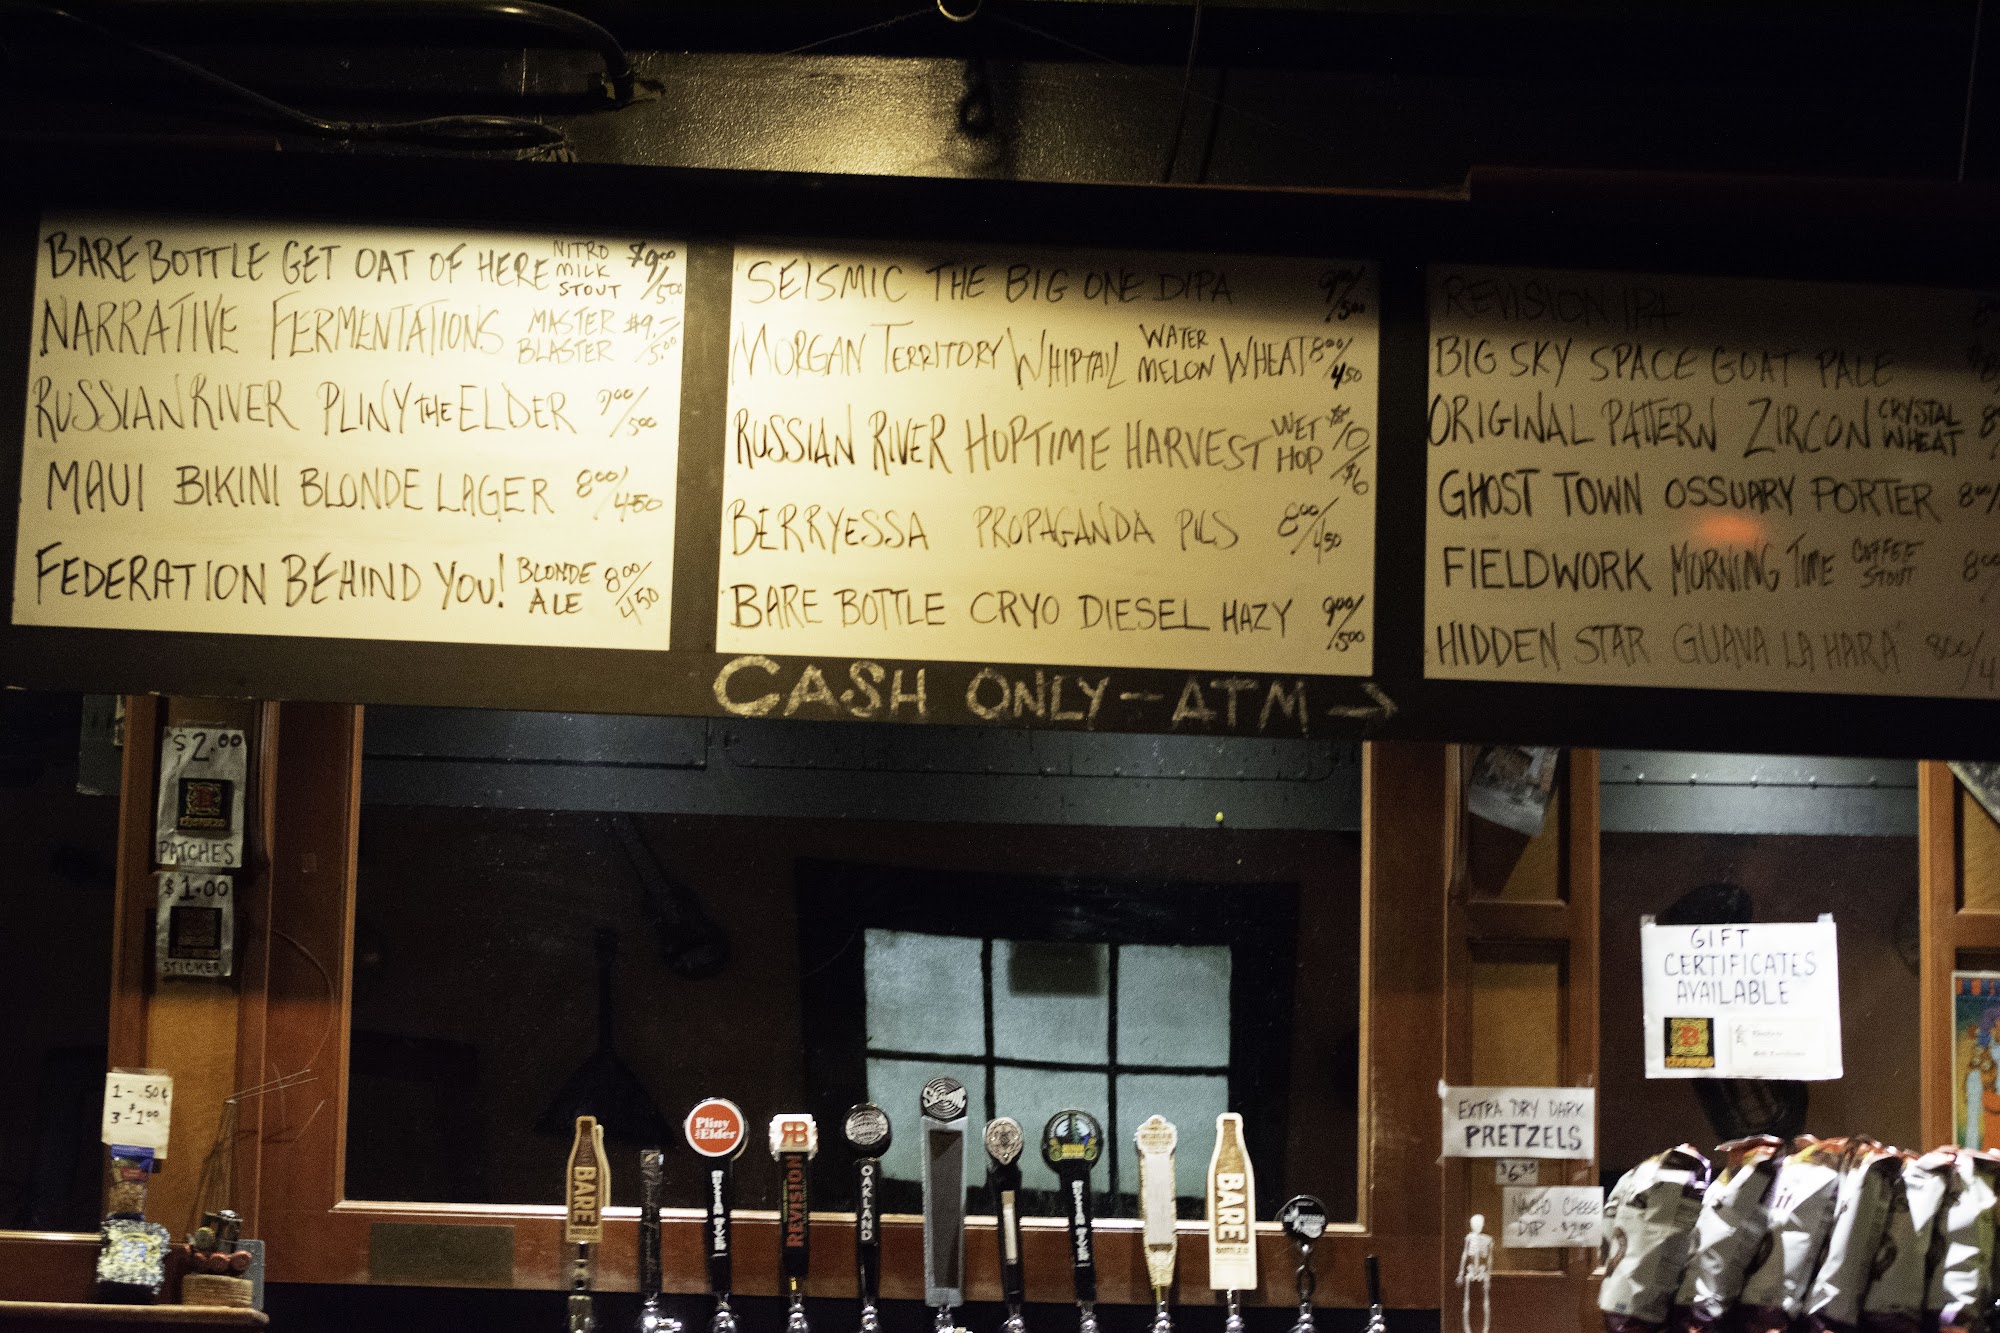 BARE BOTTLE GET OAT OF HERE NITRO MILK STOUT $9.00/5.00
NARRATIVE FERMENTATIONS MASTER BLASTER $9.-/5.00
RUSSIAN RIVER PLINY THE ELDER 9.00/5.00
MAUI BIKINI BLONDE LAGER 8.00/4.50
FEDERATION BEHIND YOU! BLONDE ALE 8.00/4.50
SEISMIC THE BIG ONE DIPA 9.00/5.00
MORGAN TERRITORY WHIPTAIL WATER MELON WHEAT 8.00/4.50
RUSSIAN RIVER HOPTIME HARVEST WET HOP $10/$6
BERRYESSA PROPAGANDA PILS 8.00/4.50
BARE BOTTLE CRYO DIESEL HAZY 9.00/5.00
REVISION IPA
BIG SKY SPACE GOAT PALE
ORIGINAL PATTERN ZIRCON CRYSTAL WHEAT
GHOST TOWN OSSUARY PORTER 8.00/
FIELDWORK MORNING TIME COFFEE STOUT 8.00
HIDDEN STAR GUAVA LA HARA 8.00/4
CASH ONLY - ATM →
$2.00
PATCHES
$1.00
STICKER
1 - .50¢
3 - $1.00
GIFT
CERTIFICATES
AVAILABLE
EXTRA DRY DARK
PRETZELS
$6.00
NACHO CHEESE
DIP - $2.00
BARE
BOTTLE
Pliny
the Elder
RUSSIAN RIVER
RB
REVISION
OAKLAND
SEISMIC
RUSSIAN RIVER
BARE
BOTTLE